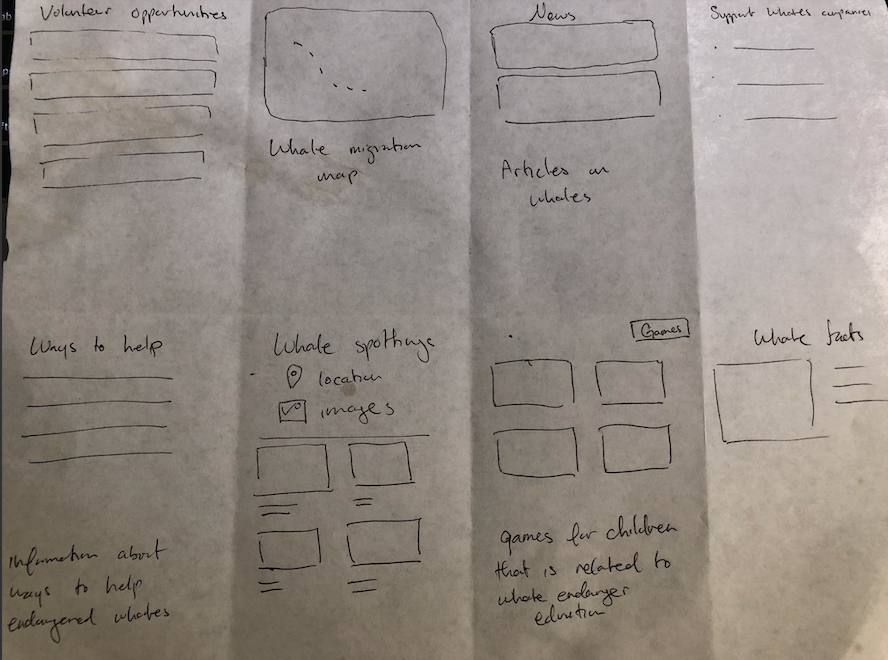 Volunteer opportunities
Whale migration
map
News
Articles on
whales
Support whales companies
Ways to help
Information about
ways to help
endangered whales
Whale spottings
location
images
Games
Games for children
that is related to
whale endanger
education
Whale facts